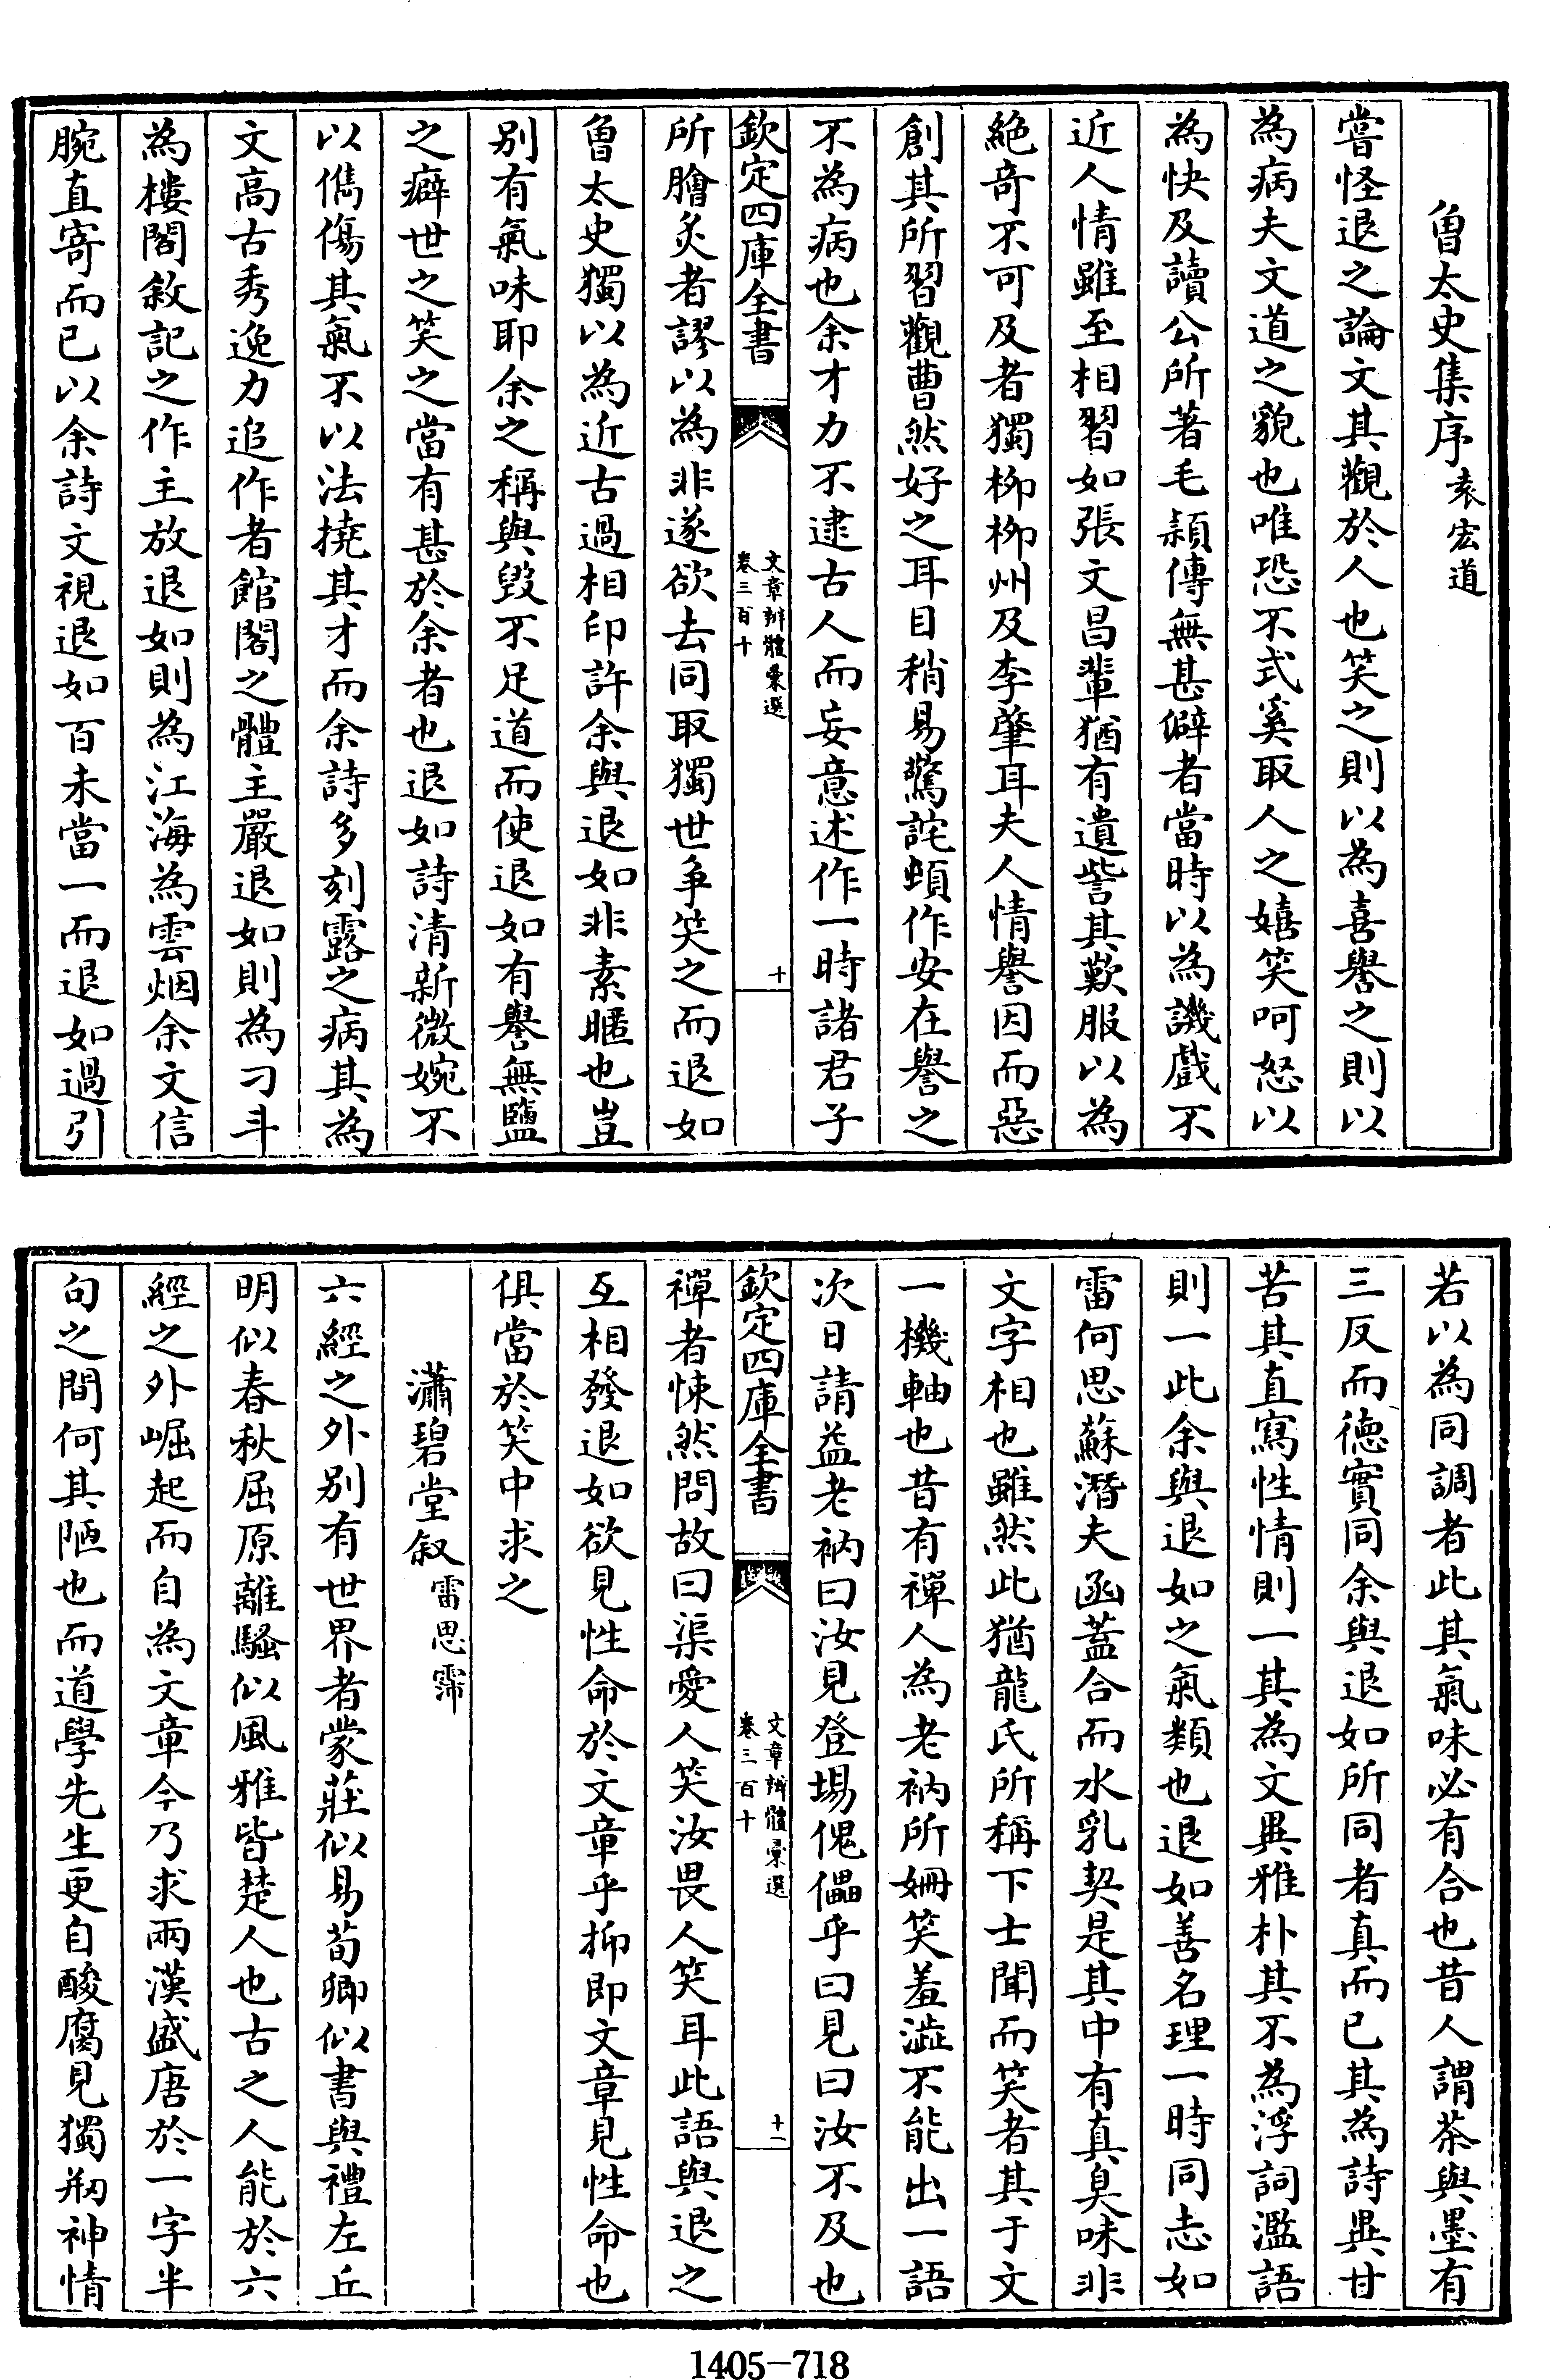 曾太史集序袁宏道
嘗怪退之論文其觀於人也笑之則以為喜譽之則以
為病夫文道之貌也唯恐不式奚取人之嬉笑呵怒以
為快及讀公所著毛頴傳無甚僻者當時以為譏戲不
近人情雖至相習如張文昌輩猶有遺訾其歎服以為
絕竒不可及者獨柳柳州及李肇耳夫人情譽因而惡
創其所習觀曹然好之耳目稍易驚詫蝟作安在譽之
不為病也余才力不逮古人而妄意述作一時諸君子
欽定四庫全書
文章辨體彙選
卷三百十
十
所膾炙者謬以為非遂欲去同取獨世爭笑之而退如
曾太史獨以為近古過相印許余與退如非素暱也豈
别有氣味耶余之稱與毁不足道而使退如有譽無鹽
之癖世之笑之當有甚於余者也退如詩清新微婉不
以儁傷其氣不以法撓其才而余詩多刻露之病其為
文高古秀逸力追作者館閣之體主嚴退如則為刁斗
為樓閣敘記之作主放退如則為江海為雲烟余文信
腕直寄而已以余詩文視退如百未當一而退如過引
若以為同調者此其氣味必有合也昔人謂茶與墨有
三反而德實同余與退如所同者真而已其為詩異甘
苦其直寫性情則一其為文異雅朴其不為浮詞濫語
則一此余與退如之氣類也退如善名理一時同志如
雷何思蘇潛夫函蓋合而水乳契是其中有真臭味非
文字相也雖然此猶龍氏所稱下士聞而笑者其于文
一機軸也昔有禪人為老衲所姍笑羞澁不能出一語
次日請益老衲曰汝見登場傀儡乎曰見曰汝不及也
欽定四庫全書
文章辨體彙選
卷三百十
十一
禪者悚然問故曰渠愛人笑汝畏人笑耳此語與退之
互相發退如欲見性命於文章乎抑即文章見性命也
俱當於笑中求之
瀟碧堂叙雷思霈
六經之外别有世界者蒙莊似易荀卿似書與禮左丘
明似春秋屈原離騷似風雅皆楚人也古之人能於六
經之外崛起而自為文章今乃求兩漢盛唐於一字半
句之間何其陋也而道學先生更自酸腐見獨剏神情
1405-718